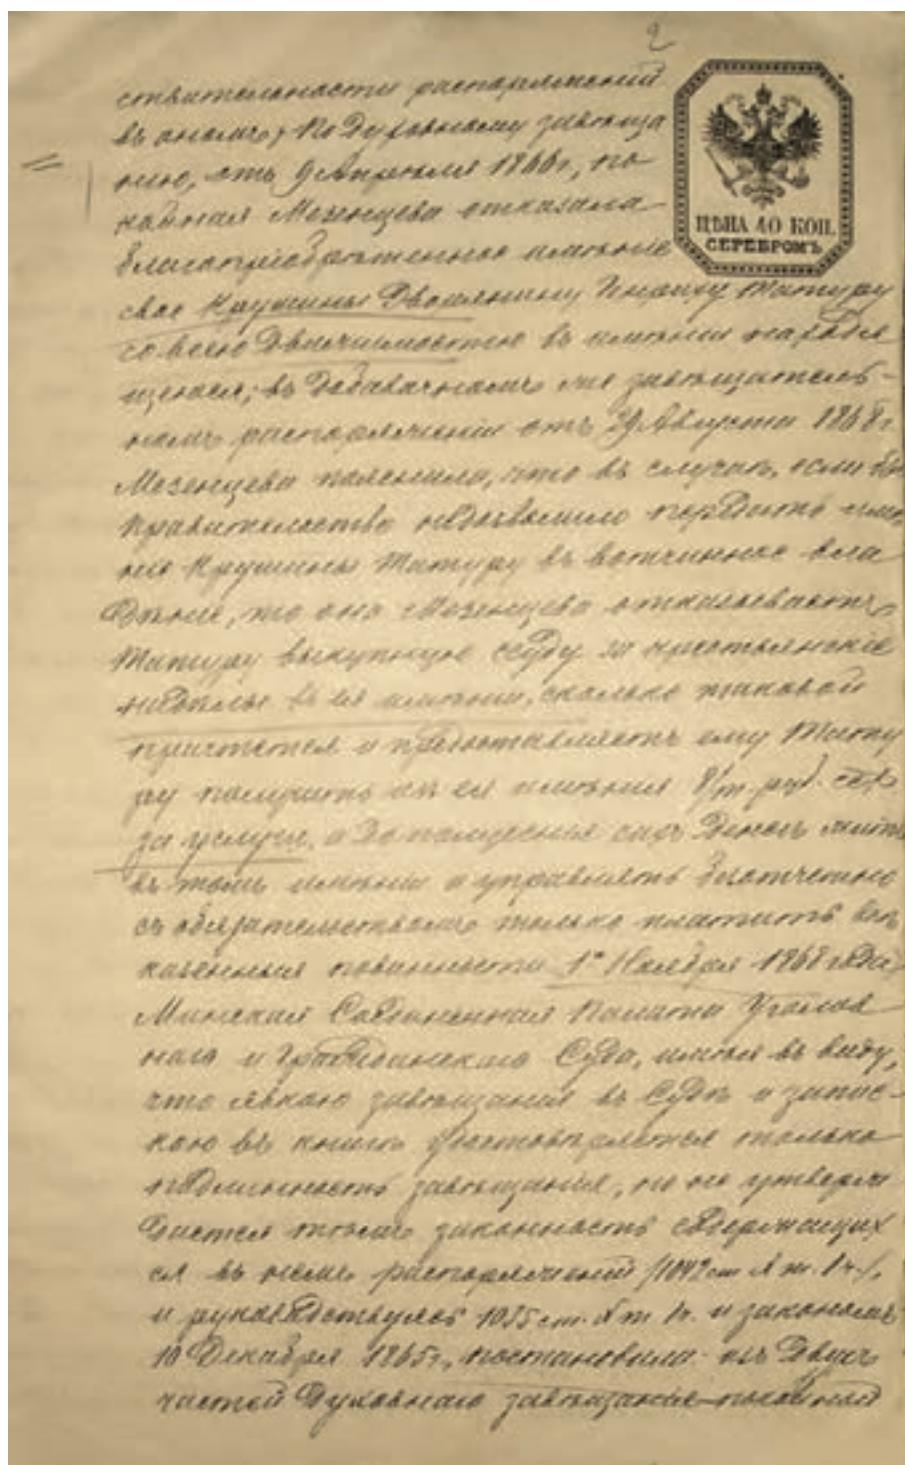 2
ствительности распоряженій
въ ономъ; по духовному завѣща
нію, отъ 9 Апрѣля 1866 г., по
койная Мезенцева отказала
благопріобрѣтенное имѣніе
ЦѢНА 40 КОП.
СЕРЕБРОМЪ
свое Крушины Дворянину Татуру
со всею движимостью въ имѣніи находя
щеюся; въ добавочномъ же завѣщатель-
номъ распоряженіи отъ 29 Августа 1868 г.
Мезенцева пояснила, что въ случаѣ, если бы
Правительство недозволило передать имѣ
ніе Крушины Татуру въ вотчинное вла
дѣніе, то она Мезенцева отказываетъ
Татуру выкупную ссуду за крестьянскіе
надѣлы въ ея имѣніи, сколько таковой
причтется и предоставляетъ ему Тату
ру получить изъ ея имѣнія 8/т. руб. сер.
за услуги, а до полученія сихъ денегъ жить
въ томъ имѣніи и управлять безотчетно
съ обязательствомъ только платить всѣ
казенныя повинности 1го Ноября 1868 года
Минская Соединенная Палата Уголов
наго и Гражданскаго Суда, имѣя въ виду,
что явкою завѣщанія въ Судѣ и запис-
кою въ книгѣ удостовѣряется только
подлинность завѣщанія, но не утверж
дается тѣмъ законность содержащих
ся въ немъ распоряженій /1042 ст. X т. 1 ч./,
и руководствуясь 1035 ст. X т. 1 ч. и закономъ
10 Декабря 1865 г., постановила: изъ двухъ
частей духовнаго завѣщанія покойной